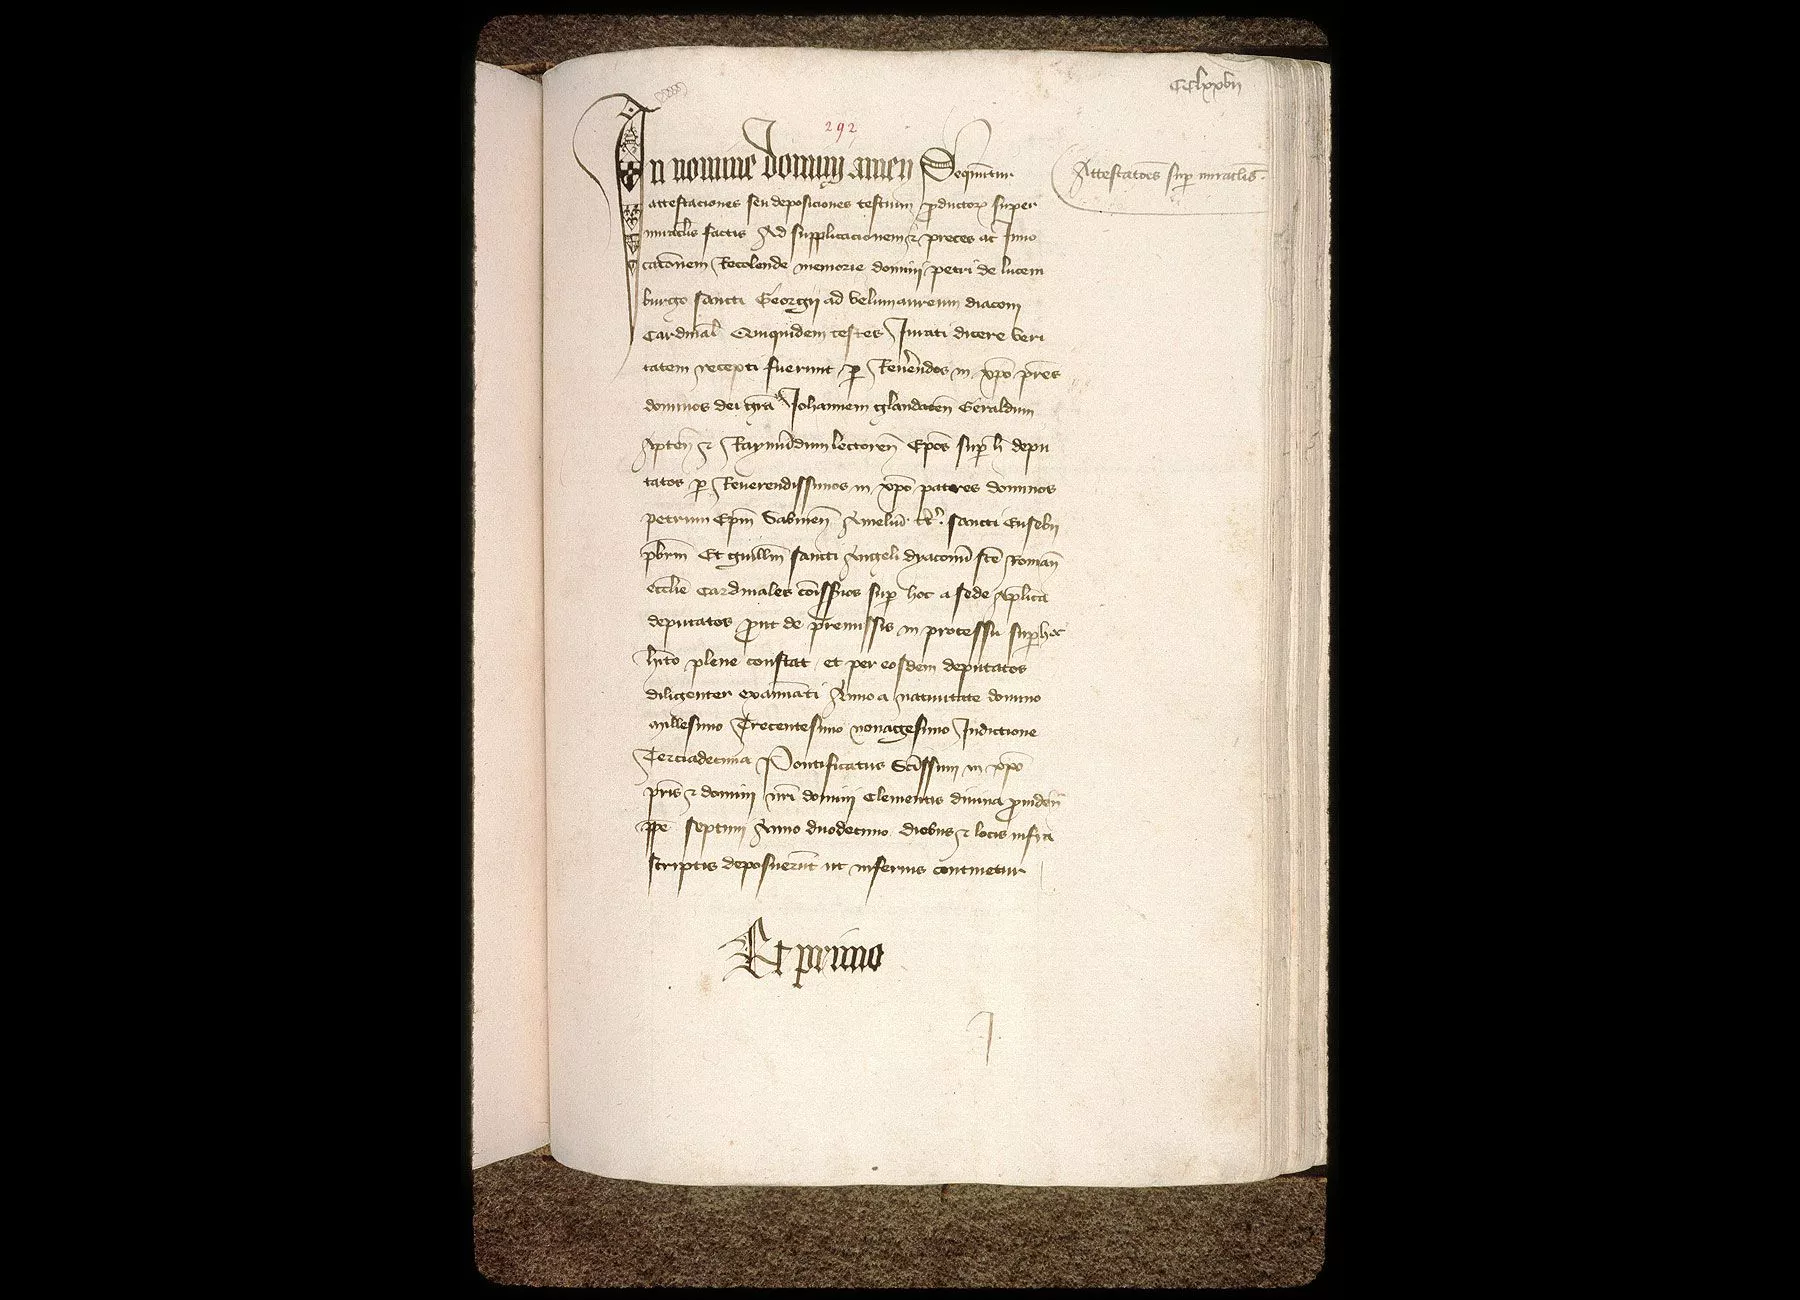 CClxxvii
292
In nomine domini amen Sequntur
Attestatoēs sup miraclis.
attestaciones seu deposiciones testium productor super
miraclis factis Ad supplicacionem et preces ac Inuo
catonem Recolende memorie domini petri de lucem
burgo sancti Georgii ad velum aureum diaconi
Cardinal Quiquidem testes Jurati dicere veri
tatem recepti fuerunt per Reuerēdos in xpo pres
dominos dei gra Johannem glandatēn Geraldum
Aptēn et Raymūdum lectorēn Epos sup h depu
tatos per Reuerendissimos in xpo patres dominos
petrum Epm Sabineñ Ameliū tt. sancti Eusebii
pbrm Et guillm sancti Angeli dyaconū sce Romañ
ecclie Cardinales cōissarios sup hoc a sede Aplica
deputatos prout de premissis in processu sup hoc
hito plene constat et per eosdem deputatos
diligenter examinati Anno a natiuitate domino
millesimo Trecentesimo nonagesimo Indictione
Terciadecima Pontificatus Scissimi in xpo
pris et domini nri domini Clementis diuina prouideñ
ppe septimi Anno duodecimo diebus et locis infra
scriptis deposuerūt ut inferius continetur
Et primo